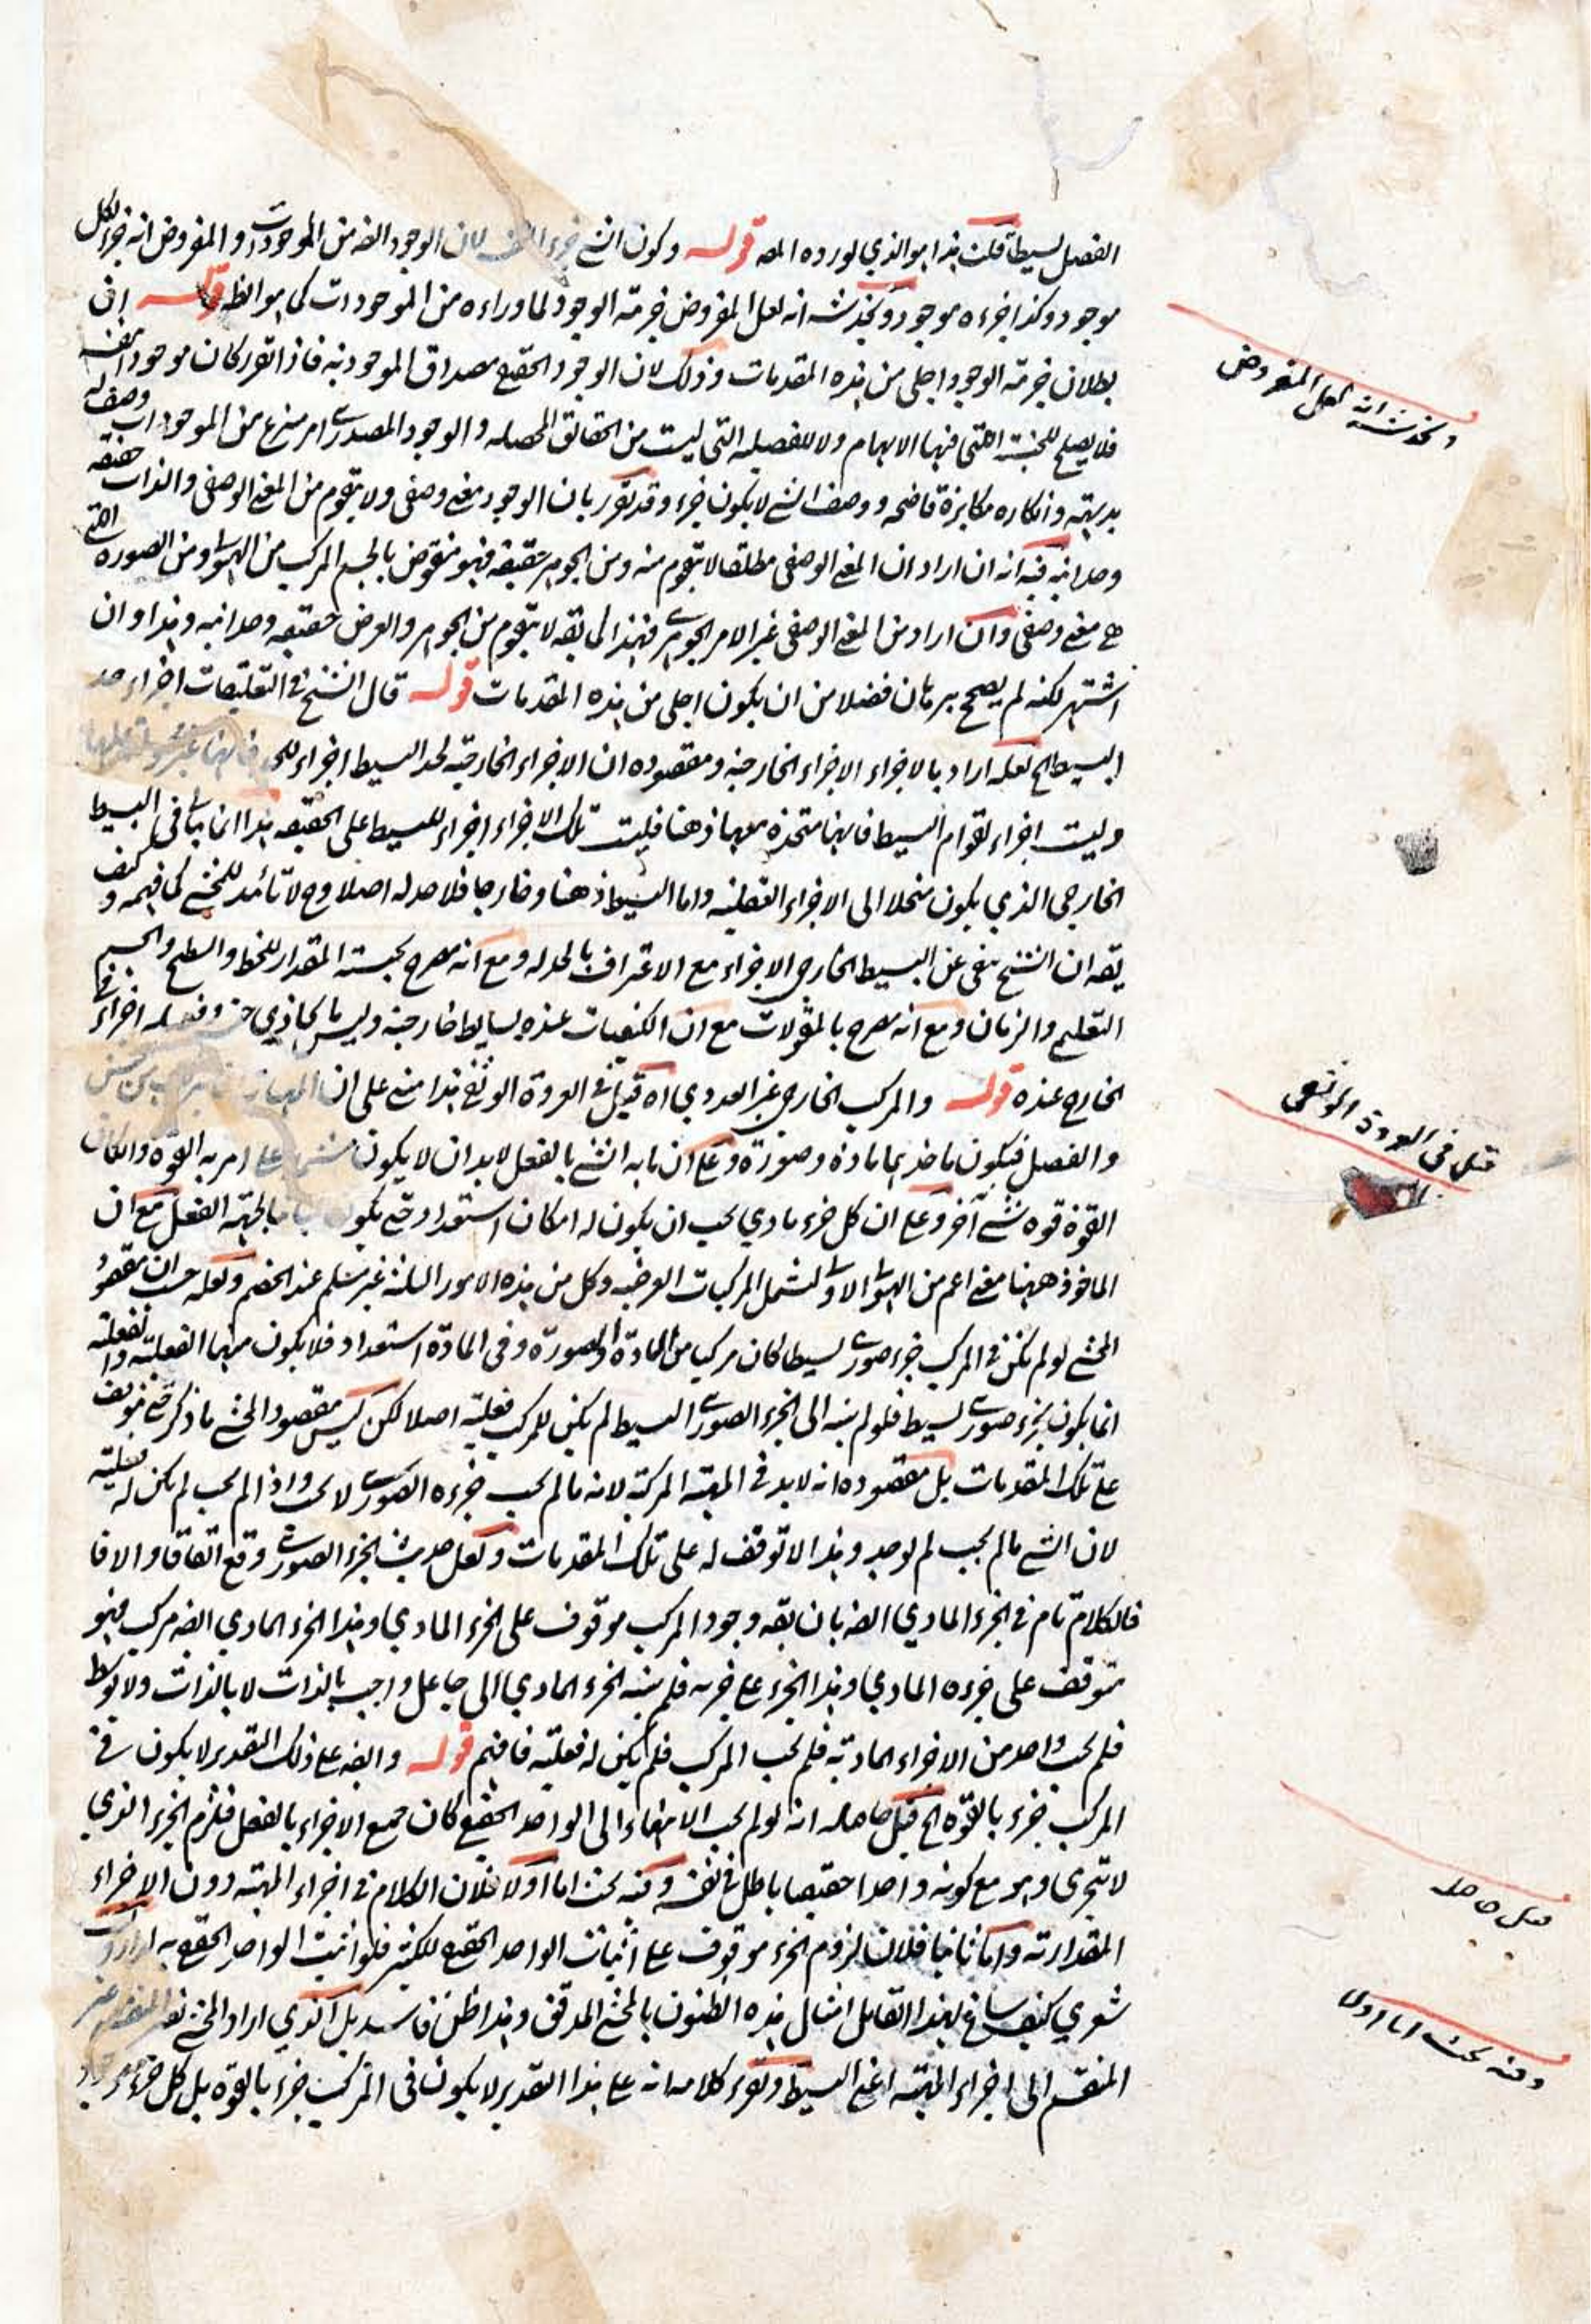 الفصل بسيطا قلت هذا هو الذي اورده المصـ قوله وكون الشئ جزء لان الوجود ايضـ من الموجودات والمفروض انه جزء لكل
موجود وكذا جزءه موجود ويخدشه انه لعل المفروض جزئية الوجود لما وراءه من الموجودات كما هو الظـ قوله ان
بطلان جزئية الوجود اجلى من هذه المقدمات وذلك لان الوجود الحقيقي مصداق الموجودية فاذا تقرر كان موجودا بنفسه
فلا يصلح للجنسية التي فيها الابهام ولا للفصلية التي ليست من الحقائق المحصلة والوجود المصدري امر منتزع من الموجودات وصف له
بديهة وانكاره مكابرة فاضحة ووصف الشئ لا يكون جزء وقد تقرر بان الوجود معنى وصفي ولا يتقوم من المعنى الوصفي والذات حقيقة
وحدانية فيه انه ان اراد ان المعنى الوصفي مطلقا لا يتقوم منه ومن الجوهر حقيقة فهو منقوض بالجسم المركب من الهيولى ومن الصورة التي
هي معنى وصفي وان اراد من المعنى الوصفي غير الامر الجوهري فهذا كما يقـ لا يتقوم من الجوهر والعرض حقيقة وحدانية وهذا وان
اشتهر لكنه لم يصح ببرهان فضلا من ان يكون اجلى من هذه المقدمات قوله قال الشيخ في التعليقات اجزاء حد
البسيط الخ لعله اراد بالاجزاء الاجزاء الخارجية ومقصوده ان الاجزاء الخارجية لحد البسيط اجزاء للحد فانها غير محمولة عليها
وليست اجزاء لقوام البسيط فانها متحدة معها ذهنا فليست تلك الاجزاء اجزاء للبسيط على الحقيقة هذا انما يتأتى في البسيط
الخارجي الذي يكون منحلا الى الاجزاء العقلية واما البسيط ذهنا وخارجا فلا حد له اصلا وح لا تائيد للمحشي كما فهمه وكيف
يقـ ان الشيخ نفى عن البسيط الخارجي الاجزاء مع الاعتراف بالحد له ومع انه مصرح بجنسية المقدار للخط والسطح والجسم
التعليمي والزمان ومع انه مصرح بالمقولات مع ان الكيفيات عنده بسايط خارجية وليس ما يحاذي جنسه وفصله اجزاء في
الخارج عنده قوله والمركب الخارجي غير العددي اه قيل في العروة الوثقى هذا مبني على ان من جنس
والفصل فيكون ماخذيهما مادة وصورة وعلى ان ما به الشئ بالفعل لابد ان لا يكون مشتملا على امر به القوة والكان
القوة قوة شئ آخر وعلى ان كل جزء مادي يجب ان يكون له امكان استعداد حتى يكون بالجهة الفعل مع ان
الماخوذ ههنا معنى اعم من الهيولى الاولى لتشمل المركبات العرضية وكل من هذه الامور الثلثة غير مسلم عند الخصم ولعله حسب ان مقصود
المحشي لو لم يكن في المركب جزء صوري بسيط لكان مركبا من المادة والصورة وفي المادة استعداد فلا يكون منها الفعلية والفعلية
انما يكون بجزء صوري بسيط فلو لم ينته الى الجزء الصوري البسيط لم يكن للمركب فعلية اصلا لكن ليس مقصود المحشي ما ذكر حتى يتوقف
على تلك المقدمات بل مقصوده انه لابد في المهية المركبة لانه ما لم يجب جزءه الصوري لا يجب واذا لم يجب لم يكن له فعلية
لان الشئ ما لم يجب لم يوجد وهذا لا توقف له على تلك المقدمات ولعل حديث الجزء الصوري وقع اتفاقا والا فا
فالكلام تام في الجزء المادي ايضـ بان يقـ وجود المركب موقوف على الجزء المادي وهذا الجزء المادي ايضـ مركب فهو
متوقف على جزءه المادي وهذا الجزء على جزئه فلم ينته الجزء المادي الى جاعل واجب بالذات لا بالذات ولا بواسطة
فلم يجب واحد من الاجزاء المادية فلم يجب المركب فلم يكن له فعلية فافهم قوله وايضـ على ذلك التقدير لا يكون في
المركب جزء بالقوة الخ قيل حاصله انه لو لم يجب الانتهاء الى الواحد الحقيقي كان جميع الاجزاء بالفعل فلزم الجزء الذي
لا يتجزى وهو مع كونه واحدا حقيقيا باطل في نفسه وفيه بحث اما اولا فلان الكلام في اجزاء المهية دون الاجزاء
المقدارية واما ثانيا فلان لزوم الجزء موقوف على اثبات الواحد الحقيقي للكثير فلو اثبت الواحد الحقيقي به
شعري كيف ساغ لهذا القائل امثال هذه الظنون بالمحشي المدقق وهذا ظن فاسد بل الذي اراد المحشي غير
المنقسم الى اجزاء المهية اعني البسيط وتقرير كلامه انه على هذا التقدير لا يكون في المركب جزء بالقوة بل كل جزء
ويخدشه انه لعل المفروض
قيل في العروة الوثقى
قيل حاصله
وفيه بحث اما اولا